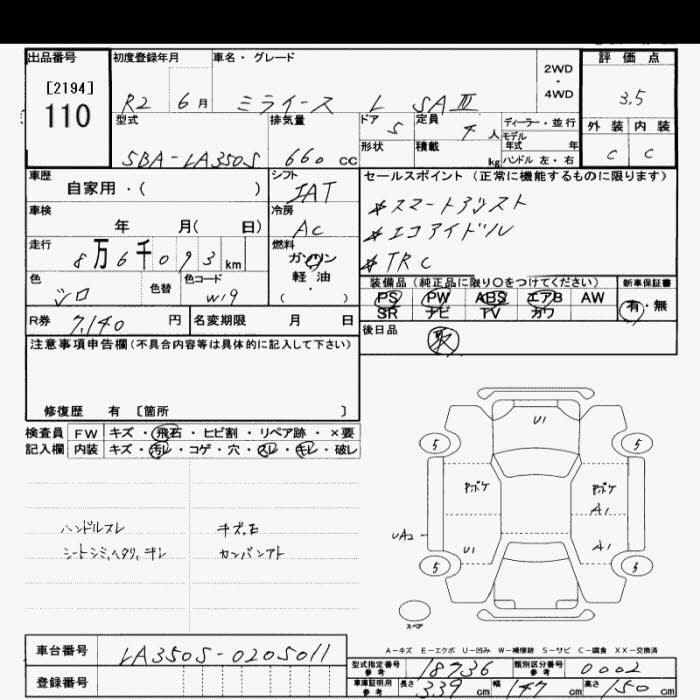 出品番号 初度登録年月 車名・グレード 評価点
[2194]
110
R2 6月 ミライース L SAⅢ 2WD・4WD 3.5
型式 排気量 ドア 5 定員 4人 ディーラー・並行 外装 内装
モデル年式 年
SBA-LA350S 660cc 形状 積載 kg ハンドル 左・右 C C
車歴 シフト セールスポイント (正常に機能するものに限ります)
自家用・( ) IAT
*スマートアシスト
車検 冷房
年 月( 日) AC *エコアイドル
走行 燃料
8万6千093km ガソリン *TRC
軽・油
( )
色 色替 色コード 装備品(純正品に限り○をつけてください) 新車保証書
シロ W19 PS PW ABS エアB AW 有・無
SR ナビ TV カワ
R券 7,140円 名変期限 月 日 後日品 取
注意事項申告欄(不具合内容等は具体的に記入して下さい)
修復歴 有 [箇所 ]
検査員 FW キズ・飛石・ヒビ割・リペア跡・×要
記入欄 内装 キズ・汚レ・コゲ・穴・スレ・キレ・破レ
U1
5 5
Pボケ Pボケ
A1
UA2
U1 A1
5 5
ハンドルスレ キズ,モ
シートシミ,ヘタリ,キレ カンバンアト
スペア
A−キズ E−エクボ U−凹み W−補修跡 S−サビ C−腐食 XX−交換済
車台番号 LA350S-0205011 型式指定番号 参考 18736 類別区分番号 参考 0002
登録番号 車庫証明用 参考 長さ 339cm 幅 147cm 高さ 150cm